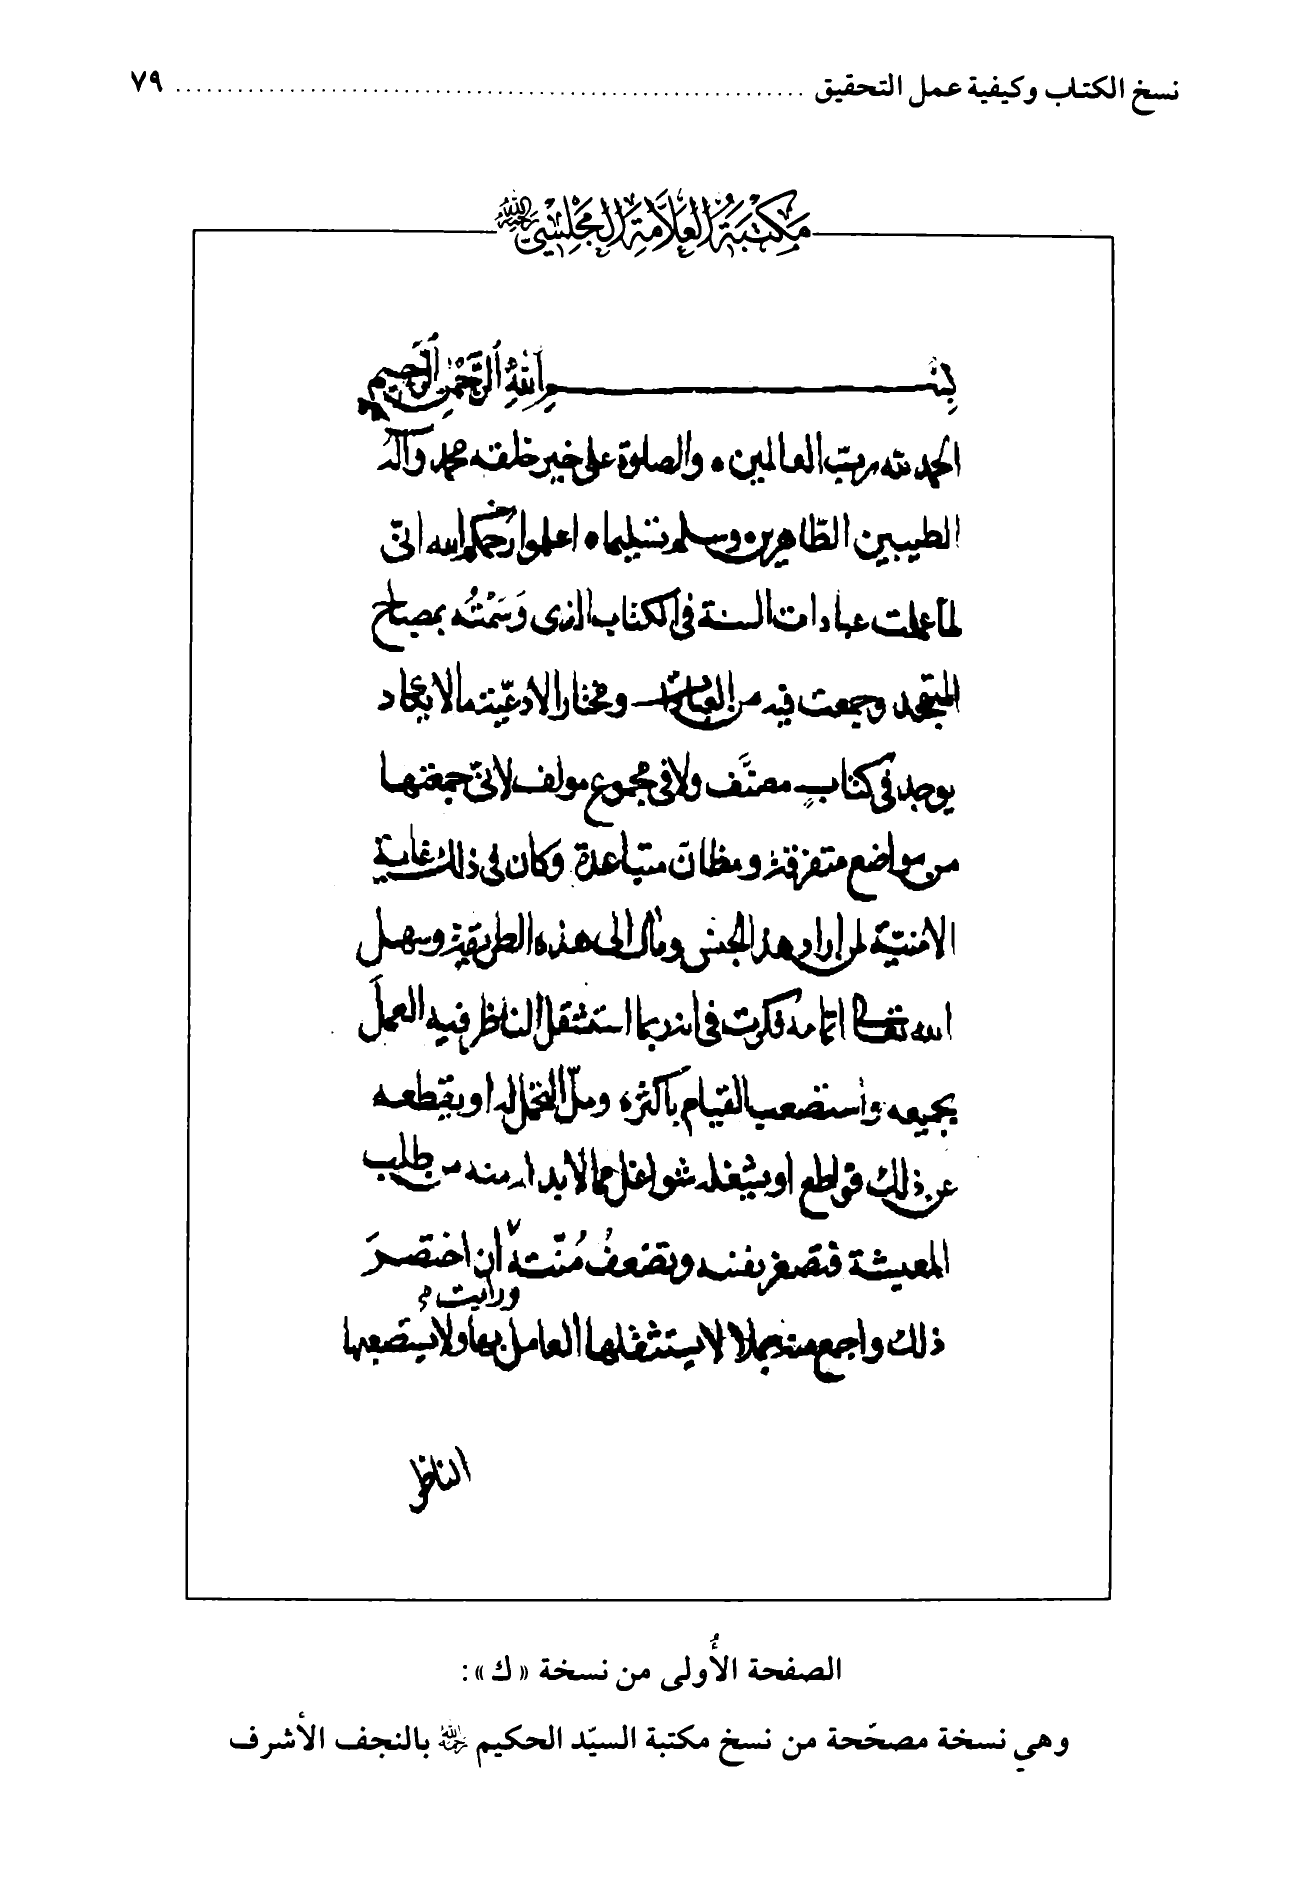 نسخ الكتاب وكيفية عمل التحقيق ........................................................ ٧٩
مَكتَبَةُ العَلَّامَةِ المَجلِسيّ رحمه الله
بِسْمِ اللهِ الرَّحْمٰنِ الرَّحيمِ
الحمد لله ربّ العالمين ، والصلوة على خير خلقه محمد وآله
الطيبين الطّاهرين وسلم تسليما ، اعلموا رحمكم الله انّى
لما عملت عبادات السنة في الكتاب الذى وَسَمْتُه بمصباح
المتهجد وجمعت فيه من العبادات ومختار الادعيّة ما لا يكاد
يوجد في كتاب مصنَّف ولا في مجموع مولف لانّى جمعتها
من مواضع متفرقة ومظانّ متباعدة وكان في ذلك غاية
الامنيّة لمن اراد هذ الجنس ومال الى هذه الطريقة وسهل
الله تعالى اتمامه فكرت في انه ربما استثقل الناظر فيه العمل
بجميعه واستصعب القيام باكثره وملّ التحمل له او يقطعه
عن ذلك قواطع او يشغله شواغل مما لابد له منه من طلب
المعيشة فتصغر نفسه وتضعفُ مُنّته أن اختصرَ
ورأيت
ذلك واجمع منه جملا لا يستثقلها العامل بها ولا يستصعبها
الناظر
الصفحة الأُولى من نسخة «ك»:
وهي نسخة مصحّحة من نسخ مكتبة السيّد الحكيم رحمه الله بالنجف الأشرف